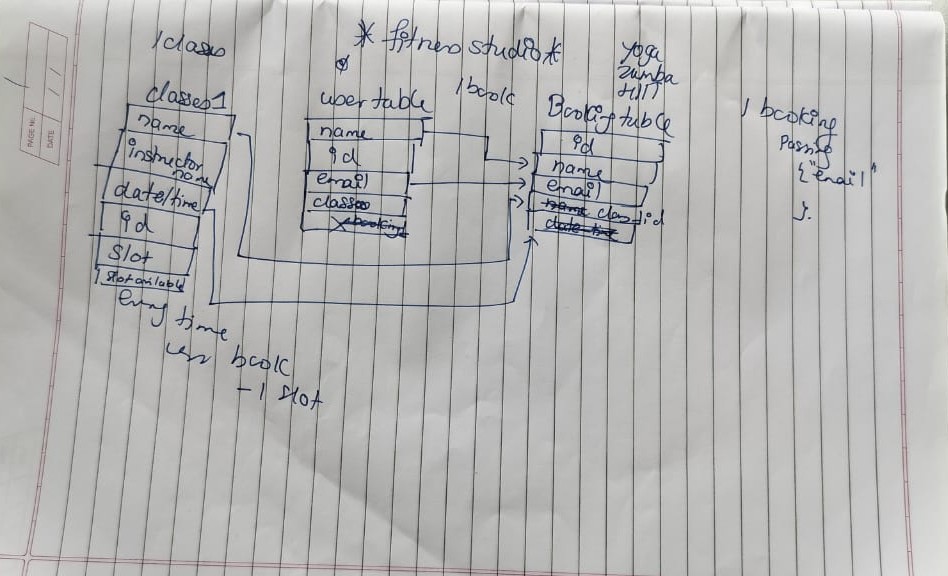 PAGE NO.
DATE
/class
* fitness studio *
classes1
name
instructor
name
date/time
id
slot
slot available
every time
user book
-1 slot
user table
name
id
email
classes
booking
/book
yoga
zumba
HIIT
Booking table
id
name
email
name class_id
date time
/ booking
passing
{"email"
}.